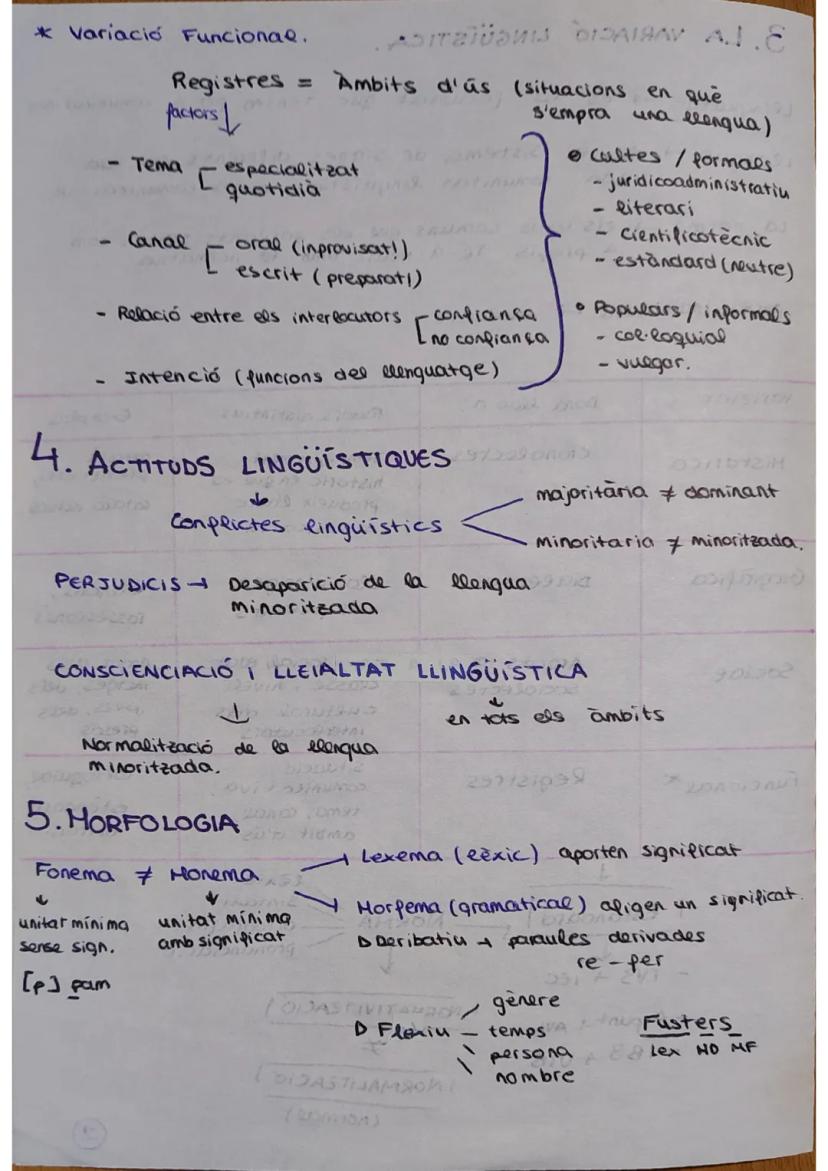 * Variació Funcional.
Registres = Àmbits d'ús (situacions en què
s'empra una llengua)
factors ↓
- Tema [ especialitzat
quotidià
- Canal [ oral (inprovisat!)
escrit (preparat!)
- Relació entre els interlocutors [ confiança
no confiança
- Intenció (funcions del llenguatge)
• Cultes / formals
- juridicoadministratiu
- literari
- Cientificotècnic
- estàndard (neutre)
• Populars / informals
- col·loquial
- vulgar.
4. ACTITUDS LINGÜÍSTIQUES
↓
Conflictes lingüístics
majoritària ≠ dominant
minoritaria ≠ minoritzada.
PERJUDICIS → Desaparició de la llengua
minoritzada
CONSCIENCIACIÓ i LLEIALTAT LLINGÜÍSTICA
↓ ↓
en tots els àmbits
Normalització de la llengua
minoritzada.
5. MORFOLOGIA
Fonema ≠ Monema
→ Lexema (lèxic) aporten significat
→ Morfema (gramatical) afigen un significat.
↓ ↓
unitat mínima
sense sign.
unitat mínima
amb significat
[p] pam
D Deribatiu → paraules derivades
re - fer
D Flexiu - gènere
temps
persona
nombre
Fusters
Lex MD MF